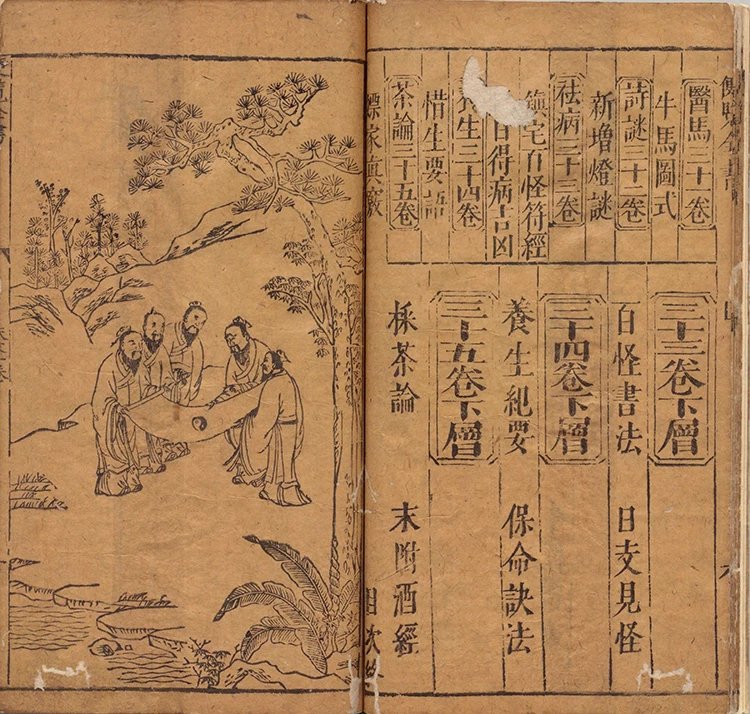 醫馬三十一卷
牛馬圖式
詩謎三十二卷
新增燈謎
祛病三十三卷
鎮宅百怪符經
日得病吉凶
養生三十四卷
惜生要語
茶論三十五卷
三十三卷下層
百怪書法 日支見怪
三十四卷下層
養生紀要 保命訣法
三十五卷下層
採茶論 末附酒經
目次終